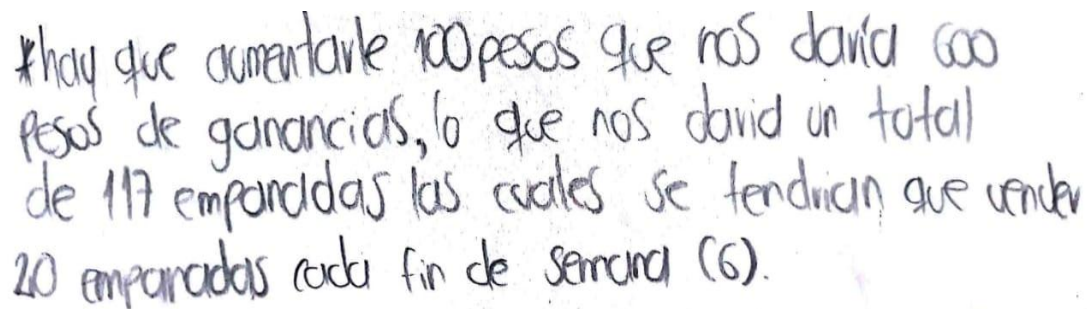 *hay que aumentarle 100 pesos que nos daria 600
pesos de ganancias, lo que nos daria un total
de 117 empanadas las cuales se tendrian que vender
20 empanadas cada fin de semana (6).